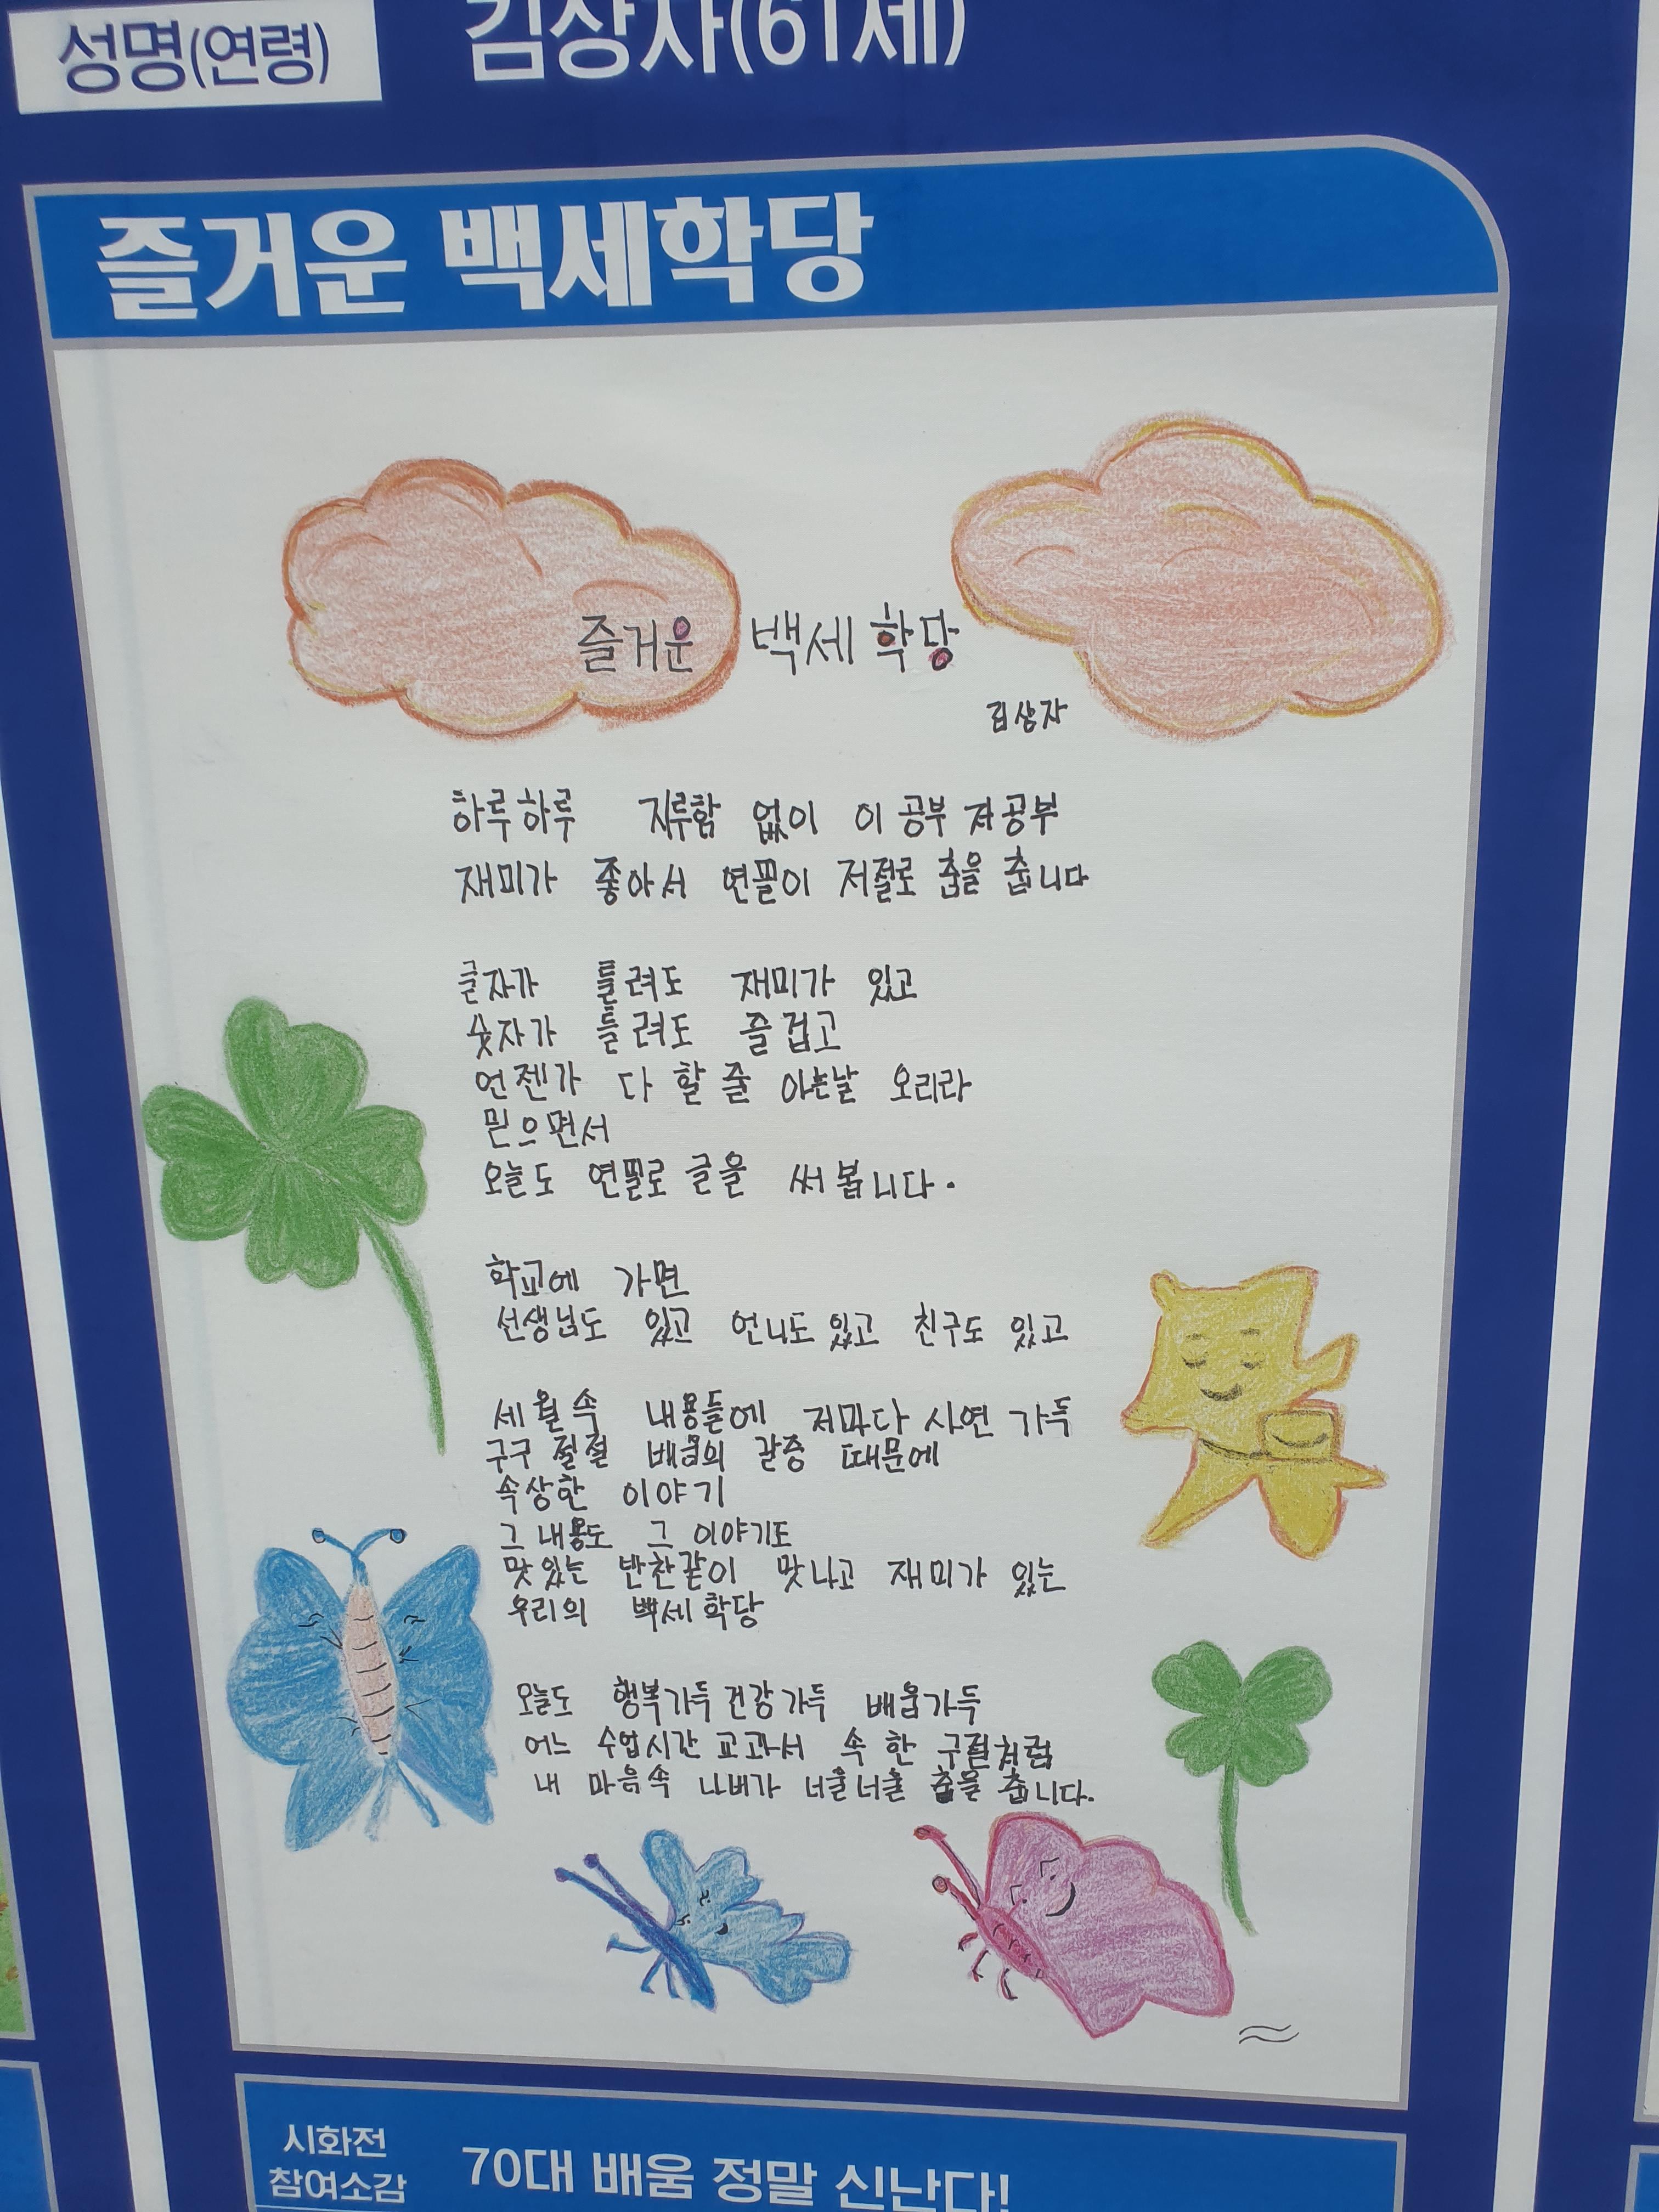 성명(연령)
김상자(61세)
즐거운 백세학당
즐거운 백세 학당
김상자
하루하루 지루함 없이 이 공부 저 공부
재미가 좋아서 연필이 저절로 춤을 춥니다
글자가 틀려도 재미가 있고
숫자가 틀려도 즐겁고
언젠가 다 할 줄 아는날 오리라
믿으면서
오늘도 연필로 글을 써 봅니다.
학교에 가면
선생님도 있고 언니도 있고 친구도 있고
세월속 내용들에 저마다 사연 가득
구구 절절 배움의 갈증 때문에
속상한 이야기
그 내용도 그 이야기도
맛있는 반찬같이 맛나고 재미가 있는
우리의 백세 학당
오늘도 행복가득 건강가득 배움가득
어느 수업시간 교과서 속 한 구절처럼
내 마음속 나비가 너울너울 춤을 춥니다.
시화전
참여소감
70대 배움 정말 신난다!